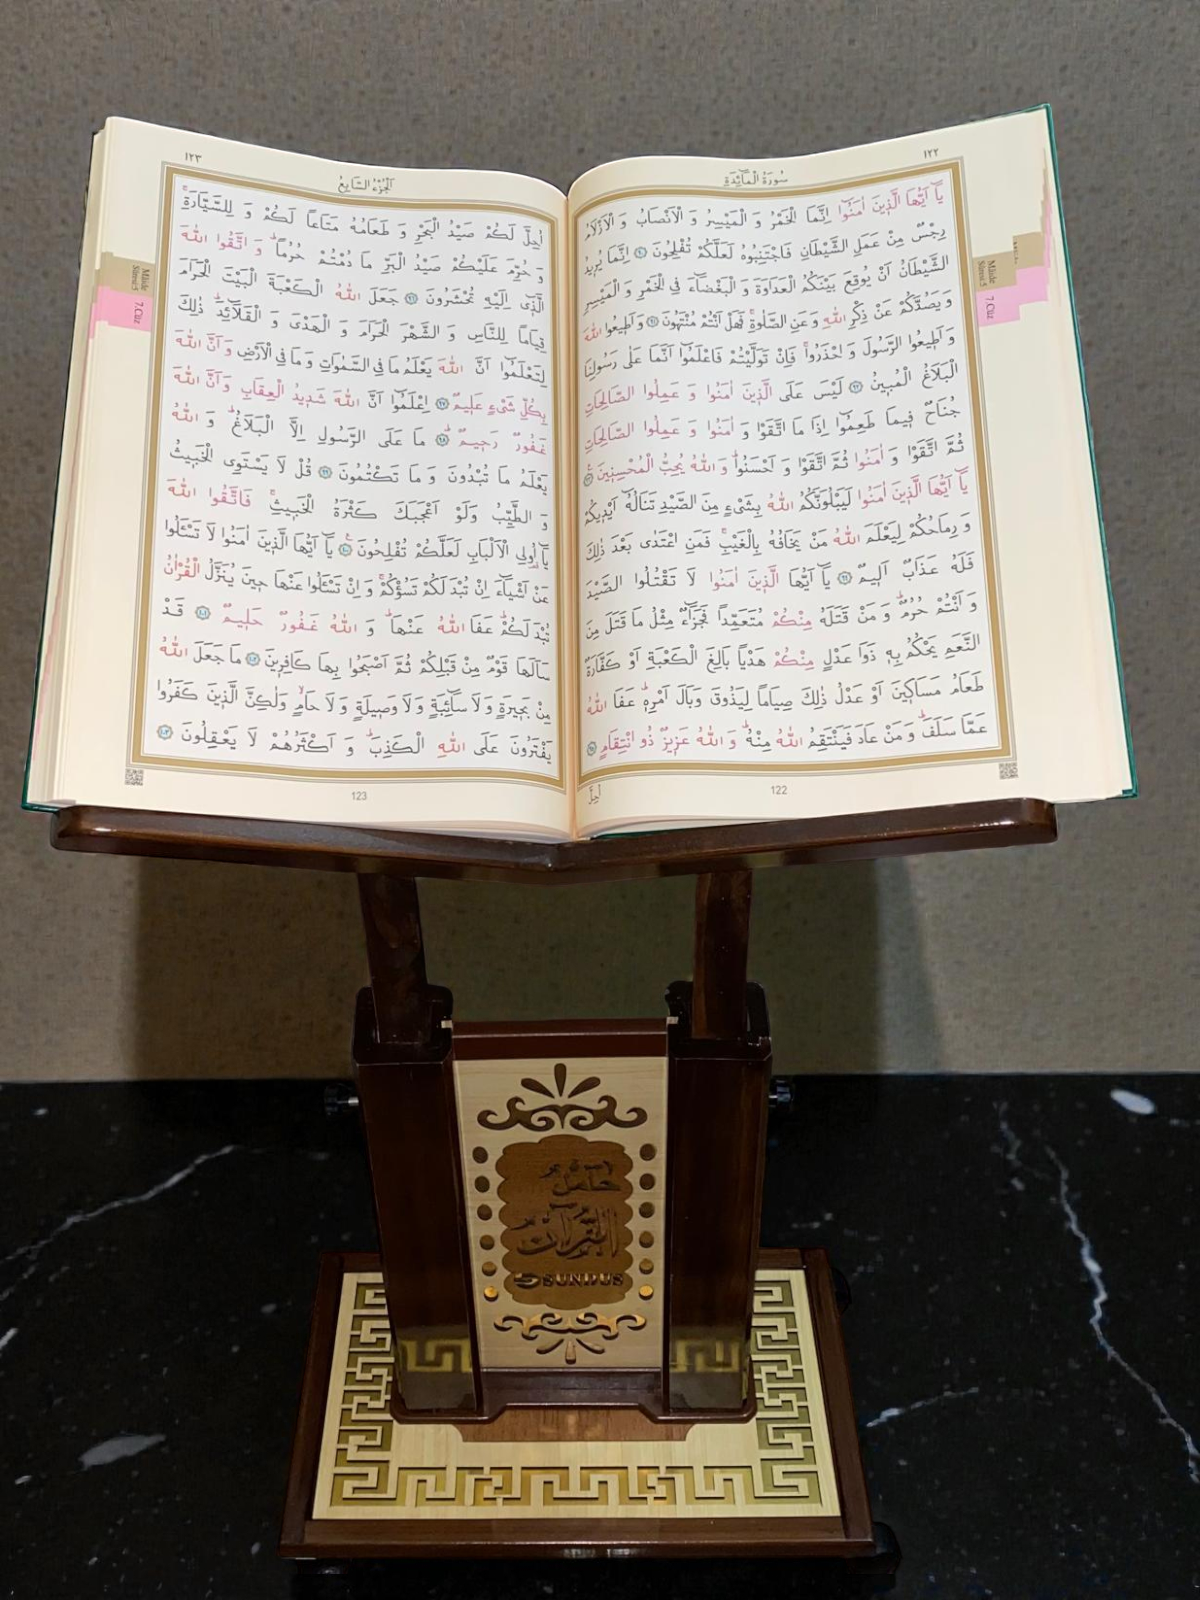 ١٢٢
سُورَةُ الْمَٓائِدَةِ
يَٓا اَيُّهَا الَّذ۪ينَ اٰمَنُٓوا اِنَّمَا الْخَمْرُ وَ الْمَيْسِرُ وَ الْاَنْصَابُ وَ الْاَزْلَامُ
رِجْسٌ مِنْ عَمَلِ الشَّيْطَانِ فَاجْتَنِبُوهُ لَعَلَّكُمْ تُفْلِحُونَ ٩٠ اِنَّمَا يُر۪يدُ
الشَّيْطَانُ اَنْ يُوقِعَ بَيْنَكُمُ الْعَدَاوَةَ وَ الْبَغْضَٓاءَ فِي الْخَمْرِ وَ الْمَيْسِرِ
وَ يَصُدَّكُمْ عَنْ ذِكْرِ اللّٰهِ وَ عَنِ الصَّلٰوةِۚ فَهَلْ اَنْتُمْ مُنْتَهُونَ ٩١ وَ اَط۪يعُوا اللّٰهَ
وَ اَط۪يعُوا الرَّسُولَ وَ احْذَرُواۚ فَاِنْ تَوَلَّيْتُمْ فَاعْلَمُٓوا اَنَّمَا عَلٰى رَسُولِنَا
الْبَلَاغُ الْمُب۪ينُ ٩٢ لَيْسَ عَلَى الَّذ۪ينَ اٰمَنُوا وَ عَمِلُوا الصَّالِحَاتِ
جُنَاحٌ ف۪يمَا طَعِمُٓوا اِذَا مَا اتَّقَوْا وَ اٰمَنُوا وَ عَمِلُوا الصَّالِحَاتِ
ثُمَّ اتَّقَوْا وَ اٰمَنُوا ثُمَّ اتَّقَوْا وَ اَحْسَنُواۜ وَ اللّٰهُ يُحِبُّ الْمُحْسِن۪ينَ ٩٣
يَٓا اَيُّهَا الَّذ۪ينَ اٰمَنُوا لَيَبْلُوَنَّكُمُ اللّٰهُ بِشَيْءٍ مِنَ الصَّيْدِ تَنَالُهُٓ اَيْد۪يكُمْ
وَ رِمَاحُكُمْ لِيَعْلَمَ اللّٰهُ مَنْ يَخَافُهُ بِالْغَيْبِۚ فَمَنِ اعْتَدٰى بَعْدَ ذٰلِكَ
فَلَهُ عَذَابٌ اَل۪يمٌ ٩٤ يَٓا اَيُّهَا الَّذ۪ينَ اٰمَنُوا لَا تَقْتُلُوا الصَّيْدَ
وَ اَنْتُمْ حُرُمٌۜ وَ مَنْ قَتَلَهُ مِنْكُمْ مُتَعَمِّدًا فَجَزَٓاءٌ مِثْلُ مَا قَتَلَ مِنَ
النَّعَمِ يَحْكُمُ بِه۪ ذَوَا عَدْلٍ مِنْكُمْ هَدْيًا بَالِغَ الْكَعْبَةِ اَوْ كَفَّارَةٌ
طَعَامُ مَسَاك۪ينَ اَوْ عَدْلُ ذٰلِكَ صِيَامًا لِيَذُوقَ وَبَالَ اَمْرِه۪ۜ عَفَا اللّٰهُ
عَمَّا سَلَفَۜ وَ مَنْ عَادَ فَيَنْتَقِمُ اللّٰهُ مِنْهُۜ وَ اللّٰهُ عَز۪يزٌ ذُو انْتِقَامٍ ٩٥
اُحِلَّ
122
Mâide
Sûresi:5
7.Cüz
١٢٣
اَلْجُزْءُ السَّابِعُ
اُحِلَّ لَكُمْ صَيْدُ الْبَحْرِ وَ طَعَامُهُ مَتَاعًا لَكُمْ وَ لِلسَّيَّارَةِۚ
وَ حُرِّمَ عَلَيْكُمْ صَيْدُ الْبَرِّ مَا دُمْتُمْ حُرُمًاۜ وَ اتَّقُوا اللّٰهَ
الَّذ۪ٓي اِلَيْهِ تُحْشَرُونَ ٩٦ جَعَلَ اللّٰهُ الْكَعْبَةَ الْبَيْتَ الْحَرَامَ
قِيَامًا لِلنَّاسِ وَ الشَّهْرَ الْحَرَامَ وَ الْهَدْيَ وَ الْقَلَٓائِدَۜ ذٰلِكَ
لِتَعْلَمُٓوا اَنَّ اللّٰهَ يَعْلَمُ مَا فِي السَّمٰوَاتِ وَ مَا فِي الْاَرْضِ وَ اَنَّ اللّٰهَ
بِكُلِّ شَيْءٍ عَل۪يمٌ ٩٧ اِعْلَمُٓوا اَنَّ اللّٰهَ شَد۪يدُ الْعِقَابِ وَ اَنَّ اللّٰهَ
غَفُورٌ رَح۪يمٌۜ ٩٨ مَا عَلَى الرَّسُولِ اِلَّا الْبَلَاغُۜ وَ اللّٰهُ
يَعْلَمُ مَا تُبْدُونَ وَ مَا تَكْتُمُونَ ٩٩ قُلْ لَا يَسْتَوِي الْخَب۪يثُ
وَ الطَّيِّبُ وَلَوْ اَعْجَبَكَ كَثْرَةُ الْخَب۪يثِۚ فَاتَّقُوا اللّٰهَ
يَٓا اُو۬لِي الْاَلْبَابِ لَعَلَّكُمْ تُفْلِحُونَ۟ ١٠٠ يَٓا اَيُّهَا الَّذ۪ينَ اٰمَنُوا لَا تَسْـَٔلُوا
عَنْ اَشْيَٓاءَ اِنْ تُبْدَ لَكُمْ تَسُؤْكُمْۚ وَ اِنْ تَسْـَٔلُوا عَنْهَا ح۪ينَ يُنَزَّلُ الْقُرْاٰنُ
تُبْدَ لَكُمْۜ عَفَا اللّٰهُ عَنْهَاۜ وَ اللّٰهُ غَفُورٌ حَل۪يمٌ ١٠١ قَدْ
سَاَلَهَا قَوْمٌ مِنْ قَبْلِكُمْ ثُمَّ اَصْبَحُوا بِهَا كَافِر۪ينَ ١٠٢ مَا جَعَلَ اللّٰهُ
مِنْ بَح۪يرَةٍ وَ لَا سَٓائِبَةٍ وَ لَا وَص۪يلَةٍ وَ لَا حَامٍۙ وَلٰكِنَّ الَّذ۪ينَ كَفَرُوا
يَفْتَرُونَ عَلَى اللّٰهِ الْكَذِبَۜ وَ اَكْثَرُهُمْ لَا يَعْقِلُونَ ١٠٣
123
Mâide
Sûresi:5
7.Cüz
حَامِلُ
الْقُرْآنِ
SUNDUS